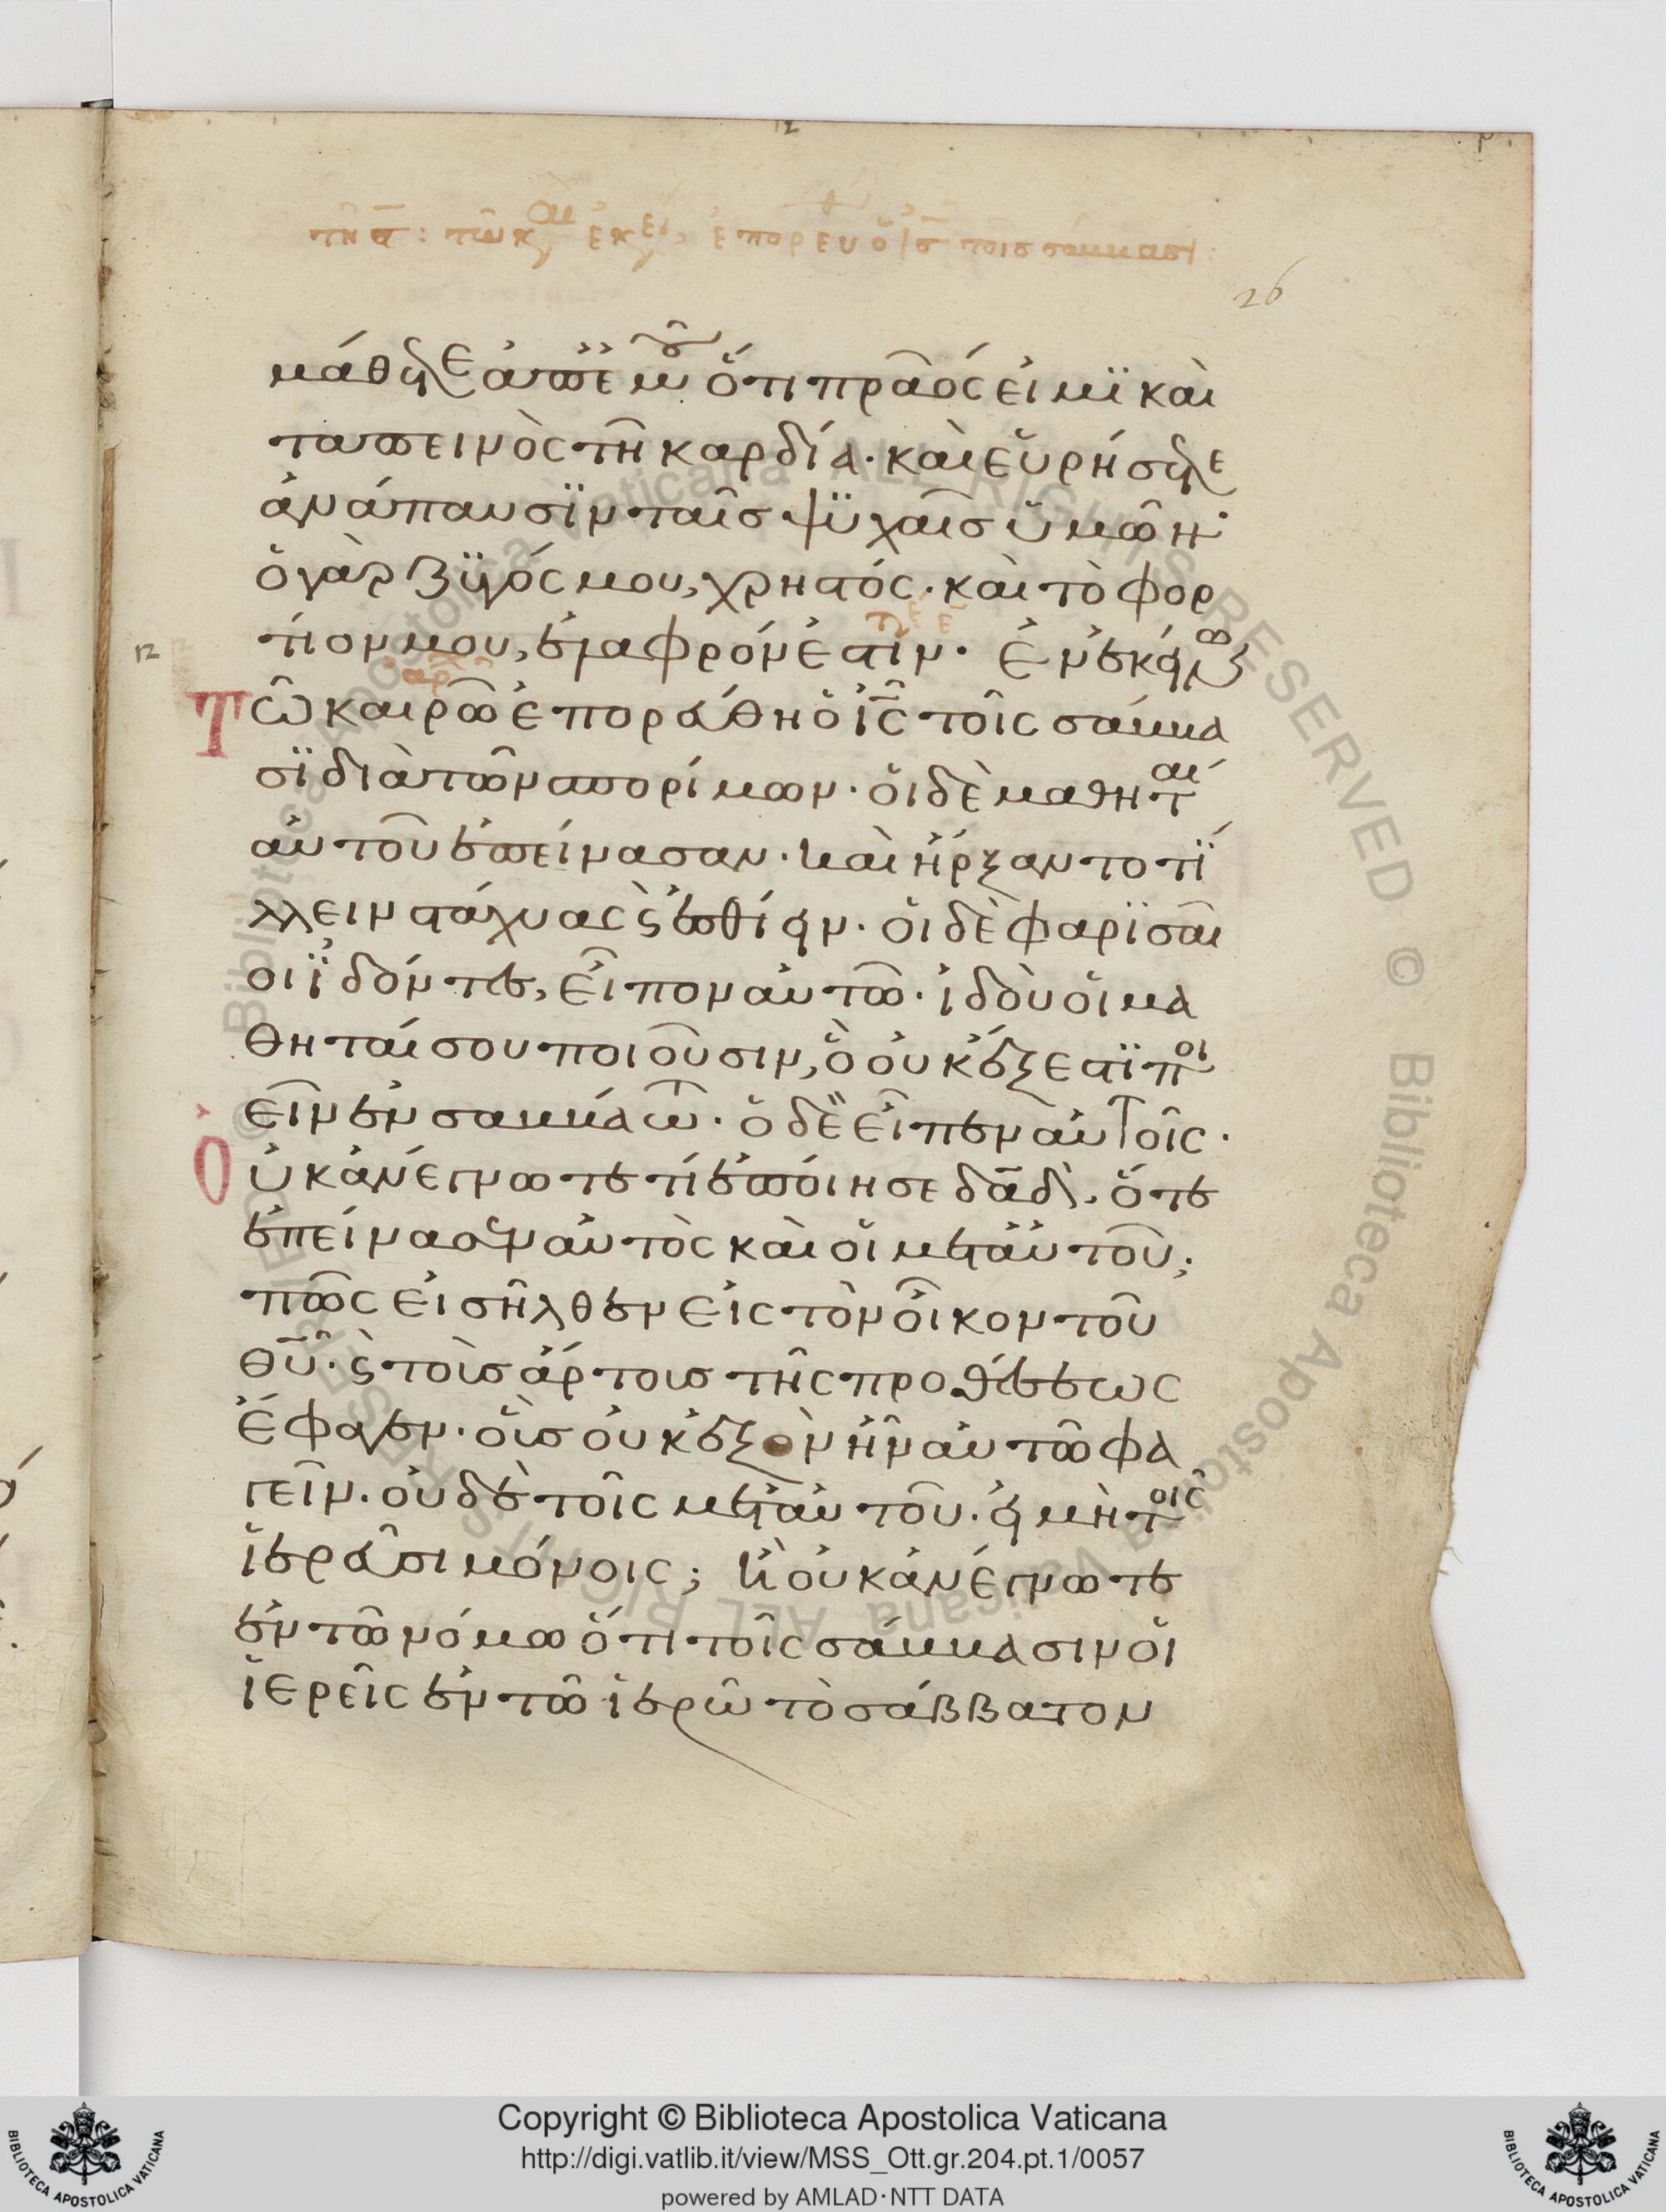 26
μάθετε ἀπ' ἐμοῦ ὅτι πρᾶός εἰμϊ καὶ
ταπεινὸς τῆ καρδία· καὶ εὑρήσετε
ἀνάπαυσϊν ταῖς ψϋχαῖς ὑμῶν·
ὁ γὰρ ζϋγός μου, χρηστός· καὶ τὸ φορ
12
τίον μου, ἐλαφρόν ἐστίν· Ἐν ἐκείνω
Τῶ καιρῶ ἐπορεύθη ὁ ἰ̅ς̅ τοῖς σάββα
σϊ διὰ τῶν σπορίμων· οἱ δὲ μαθηταί
αὐτοῦ ἐπείνασαν· καὶ ἤρξαντο τί
λλειν στάχυας ϗ ἐσθίειν· οἱ δὲ φαρϊσαῖ
οι ἰδόντες, εἶπον αὐτῶ· ἰδοὺ οἱ μα
θηταί σου ποιοῦσιν, ὃ οὐκ ἔξεστϊ ποι
εῖν ἐν σαββάτω· ὁ δὲ εἶπεν αὐτοῖς·
Οὐκ ἀνέγνωτε τί ἐποίησε δα̅δ̅· ὅτε
ἐπείνασεν αὐτὸς καὶ οἱ μετ' αὐτοῦ;
πῶς εἰσῆλθεν εἰς τὸν οἶκον τοῦ
θ̅υ̅· ϗ τοὺς ἄρτους τῆς προθέσεως
ἔφαγεν· οὓς οὐκ ἐξὸν ἦν αὐτῶ φα
γεῖν· οὐδὲ τοῖς μετ' αὐτοῦ· εἰ μὴ τοῖς
ἱερεῦσι μόνοις; Ἢ οὐκ ἀνέγνωτε
ἐν τῶ νόμω ὅτι τοῖς σάββασιν οἱ
ἱερεῖς ἐν τῶ ἱερῶ τὸ σάββατον
Copyright © Biblioteca Apostolica Vaticana
http://digi.vatlib.it/view/MSS_Ott.gr.204.pt.1/0057
powered by AMLAD·NTT DATA
BIBLIOTECA APOSTOLICA VATICANA
BIBLIOTECA APOSTOLICA VATICANA